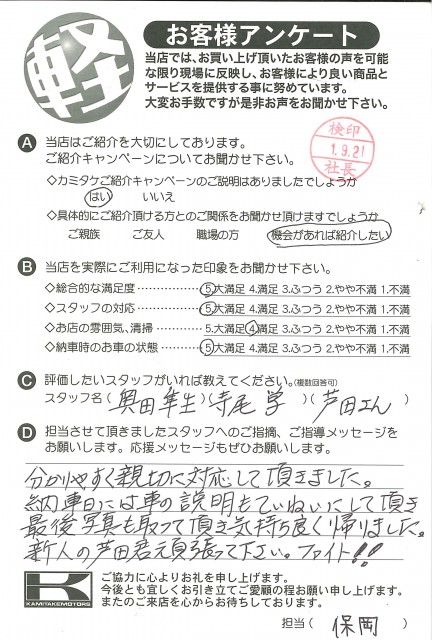 軽
お客様アンケート
当店では、お買い上げ頂いたお客様の声を可能
な限り現場に反映し、お客様により良い商品と
サービスを提供する事に努めています。
大変お手数ですが是非お声をお聞かせ下さい。
検印
1.9.21
社長
A 当店はご紹介を大切にしております。
ご紹介キャンペーンについてお聞かせ下さい。
◇カミタケご紹介キャンペーンのご説明はありましたでしょうか
はい いいえ
◇具体的にご紹介頂ける方とのご関係をお聞かせ頂けますでしょうか
ご親族 ご友人 職場の方 機会があれば紹介したい
B 当店を実際にご利用になった印象をお聞かせ下さい。
◇総合的な満足度 5.大満足 4.満足 3.ふつう 2.やや不満 1.不満
◇スタッフの対応 5.大満足 4.満足 3.ふつう 2.やや不満 1.不満
◇お店の雰囲気、清掃 5.大満足 4.満足 3.ふつう 2.やや不満 1.不満
◇納車時のお車の状態 5.大満足 4.満足 3.ふつう 2.やや不満 1.不満
C 評価したいスタッフがいれば教えてください。(複数回答可)
スタッフ名 ( 奥田隼生 ) ( 寺尾 学 ) ( 芦田さん )
D 担当させて頂きましたスタッフへのご指摘、ご指導メッセージを
お願いします。応援メッセージもぜひお願いします。
分かりやすく親切に対応して頂きました。
納車日には車の説明もていねいにして頂き
最後写真も取って頂き気持ち良く帰りました。
新人の芦田君頑張って下さい。ファイト!!
K
KAMITAKEMOTORS
ご協力に心よりお礼を申し上げます。
今後とも宜しくお引き立てご愛顧の程お願い申し上げます。
またのご来店を心からお待ちしております。
担当 ( 保岡 )